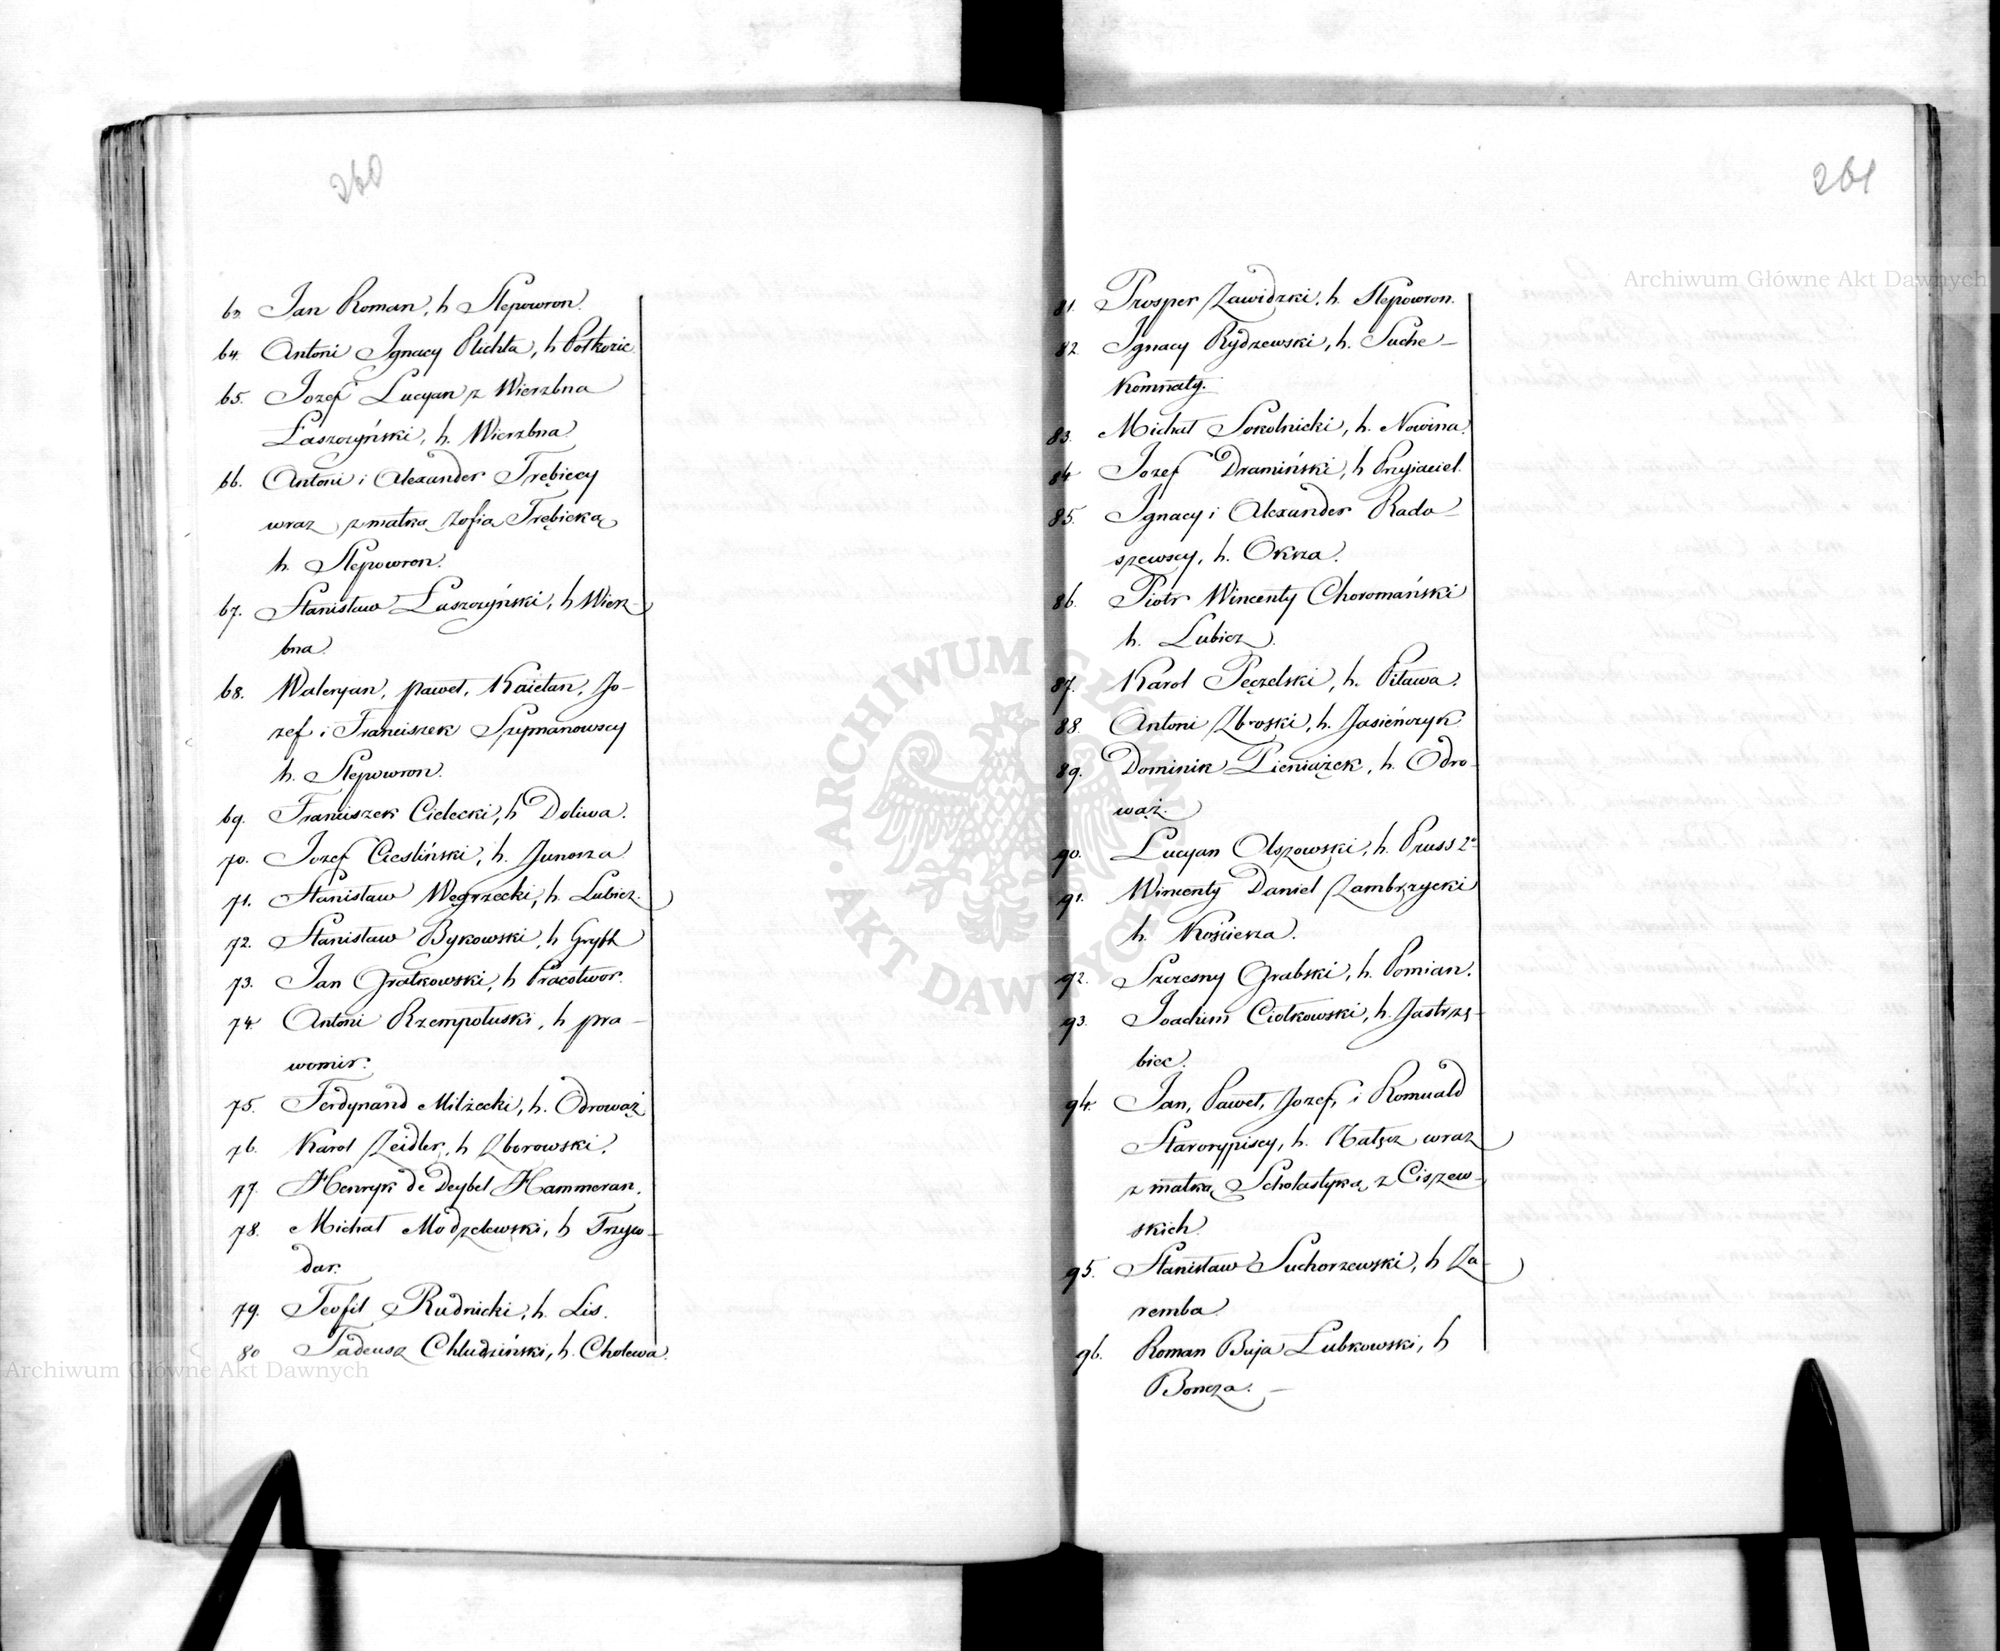 260
63. Jan Roman, h Slepowron.
64. Antoni Ignacy Plichta, h Połkozic
65. Jozef Lucyan z Wierzbna
Łaszczyński, h. Wierzbna
66. Antoni i Alexander Trębiccy
wraz z matką Zofią Trębicką
h. Slepowron.
67. Stanisław Łuszczyński, h Wierz-
bna.
68. Waleryan, Paweł, Kaietan, Jo-
zef i Franciszek Szymanowscy
h. Slepowron.
69. Franciszek Cielecki, h Doliwa.
70. Jozef Ciesliński, h. Junosza
71. Stanisław Węgrzecki, h. Lubicz.
72. Stanisław Bykowski, h Gryff
73. Jan Gratkowski, h Pracotwor.
74 Antoni Rzempołuski, h pra-
womir.
75. Ferdynand Milżecki, h. Odrowąż
76. Karol Zeidler, h Zborowski.
77. Henryk de Deybel Hammeran.
78. Michał Modzelewski, h Trzyw-
dar.
79. Teofil Rudnicki, h. Lis.
80 Tadeusz Chludziński, h. Cholewa.
261
81. Prosper Zawidzki, h. Slepowron.
82. Ignacy Rydzewski, h. Suche-
Komnaty.
83. Michał Sokolnicki, h. Nowina.
84 Jozef Dramiński, h Przyjaciel.
85. Ignacy i Alexander Rado-
szewscy, h. Oksza.
86. Piotr Wincenty Choromański
h. Lubicz.
87. Karol Pęczelski, h. Pilawa.
88. Antoni Zbroski, h. Jasieńczyk
89. Dominik Pieniążek, h. Odro-
wąż.
90. Lucyan Olszowski, h. Pruss 2o
91. Wincenty Daniel Zambrzycki
h. Kościesza.
92. Szczesny Grabski, h. Pomian.
93. Joachim Ciołkowski, h. Jastrzę-
biec.
94. Jan, Paweł, Jozef, i Romuald
Starorypiscy, h. Nałęcz wraz
z matką Scholastyką z Ciszew-
skich.
95. Stanisław Suchorzewski, h Za-
remba
96. Roman Buja Lubkowski, h
Boncza. -
Archiwum Główne Akt Dawnych
Archiwum Główne Akt Dawnych
ARCHIWUM GŁÓWNE AKT DAWNYCH